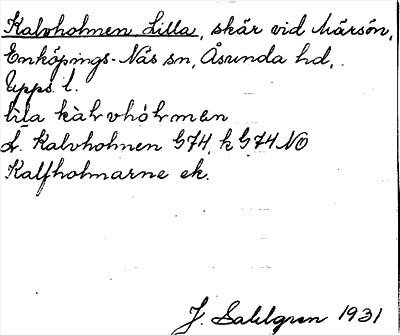 Kalvholmen, Lilla, skär vid Märsön,
Enköpings-Näs sn, Åsunda hd,
Upps. l.
lìla kàlvhólmen
L. Kalvholmen G74, k G74 NO
Kalfholmarne ek.
J. Sahlgren 1931